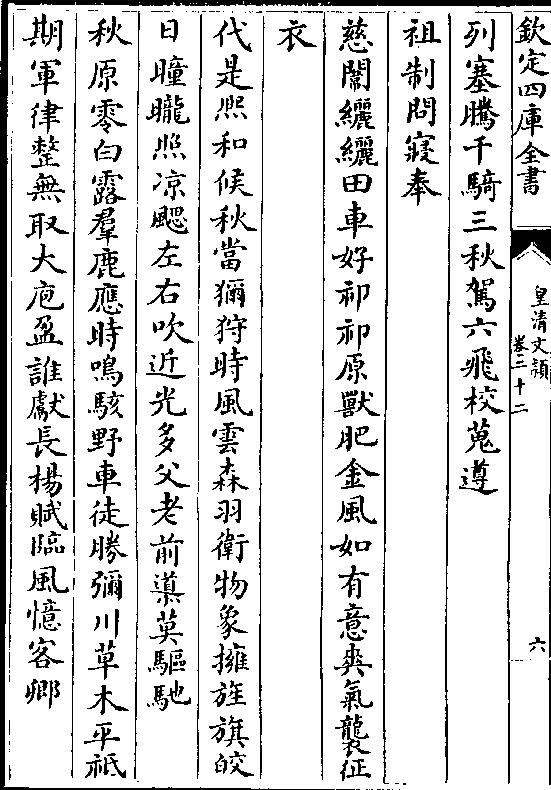 欽定四庫全書
皇清文穎
卷二十二
六
列塞騰千騎三秋駕六飛校蒐遵
祖制問寢奉
慈闈纚纚田車好祁祁原獸肥金風如有意爽氣襲征
衣
代是熈和候秋當獮狩時風雲森羽衛物象擁旌旗皎
日曈曨照凉颸左右吹近光多父老前導莫驅馳
秋原零白露羣鹿應時鳴駭野車徒勝彌川草木平祗
期軍律整無取大庖盈誰獻長楊賦臨風憶客卿